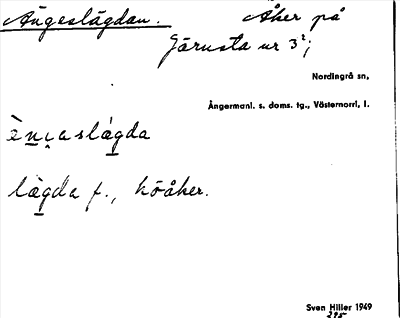 Ängeslägdan. Åker på
Järnsta nr 3²;
Nordingrå sn,
Ångermanl. s. doms. tg., Västernorrl, l.
lägda f., höåker.
Sven Hiller 1949
295